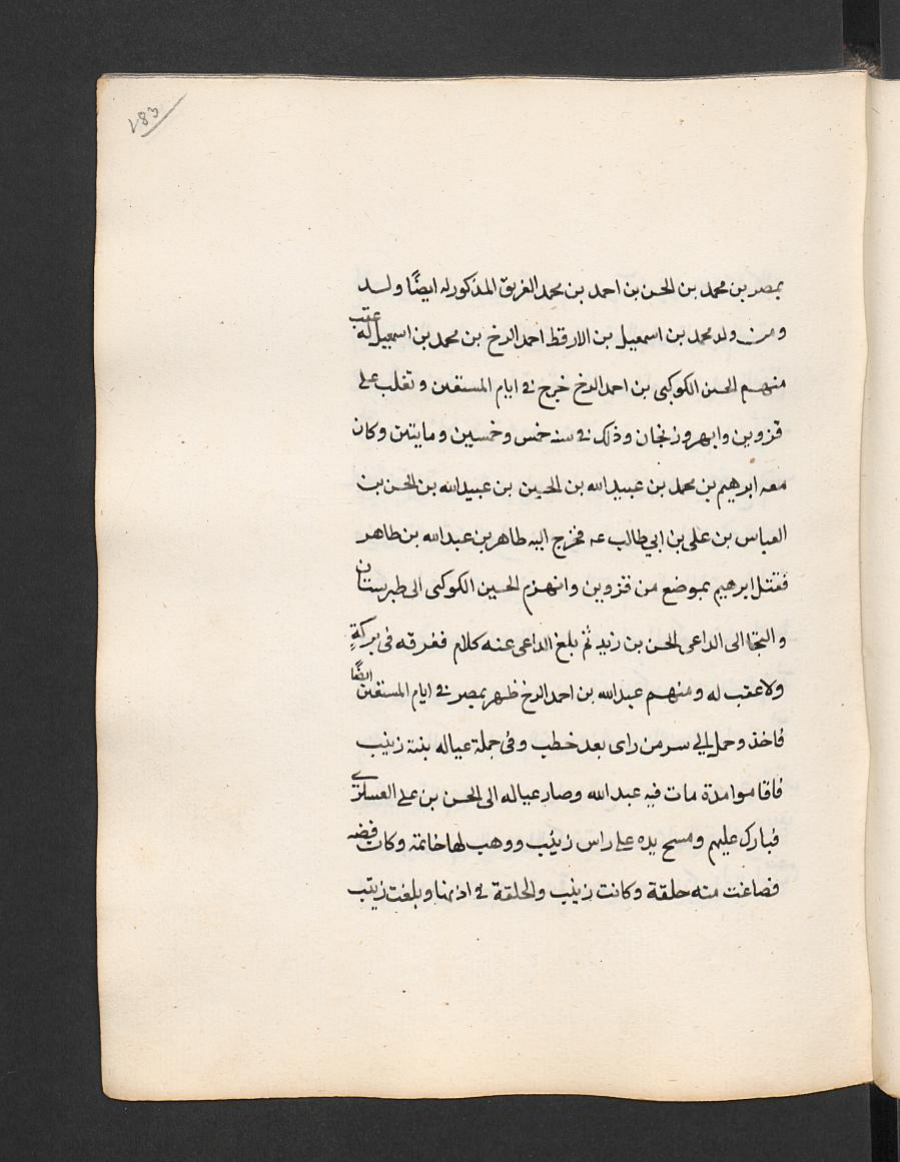 183
بمصر بن محمد بن الحسن بن احمد بن محمد الغريق المذكور له ايضًا ولد
ومن ولد محمد بن اسمعيل بن الارقط احمد الدخ بن محمد بن اسمعيل له عقب
منهم الحسن الكوكبى بن احمد الدخ خرج فى ايام المستعين وتغلب على
قزوين وابهر وزنجان وذلك فى سنه خمس وخمسين ومايتين وكان
معه ابرهيم بن محمد بن عبيد الله بن الحسين بن عبيد الله بن الحسن بن
العباس بن على بن ابي طالب عه فخرج اليه طاهر بن عبد الله بن طاهر
فقتل ابرهيم بموضع من قزوين وانهزم الحسين الكوكبى الى طبرستان
والتجا الى الداعى الحسن بن زيد ثم بلغ الداعى عنه كلام فغرقه فى بركةٍ
ولا عقب له ومنهم عبد الله بن احمد الدخ ظهر بمصر فى ايام المستعين ايضًا
فاخذ وحمل الى سر من راى بعد خطب وفى جملة عياله بنته زينب
فاقاموا مدة مات فيه عبد الله وصار عياله الى الحسن بن على العسكرى
فبارك عليهم ومسح يده على راس زينب ووهب لها خاتمه وكان فضه
فصاغت منه حلقة وكانت زينب والحلقة فى اذنها وبلغت زينب